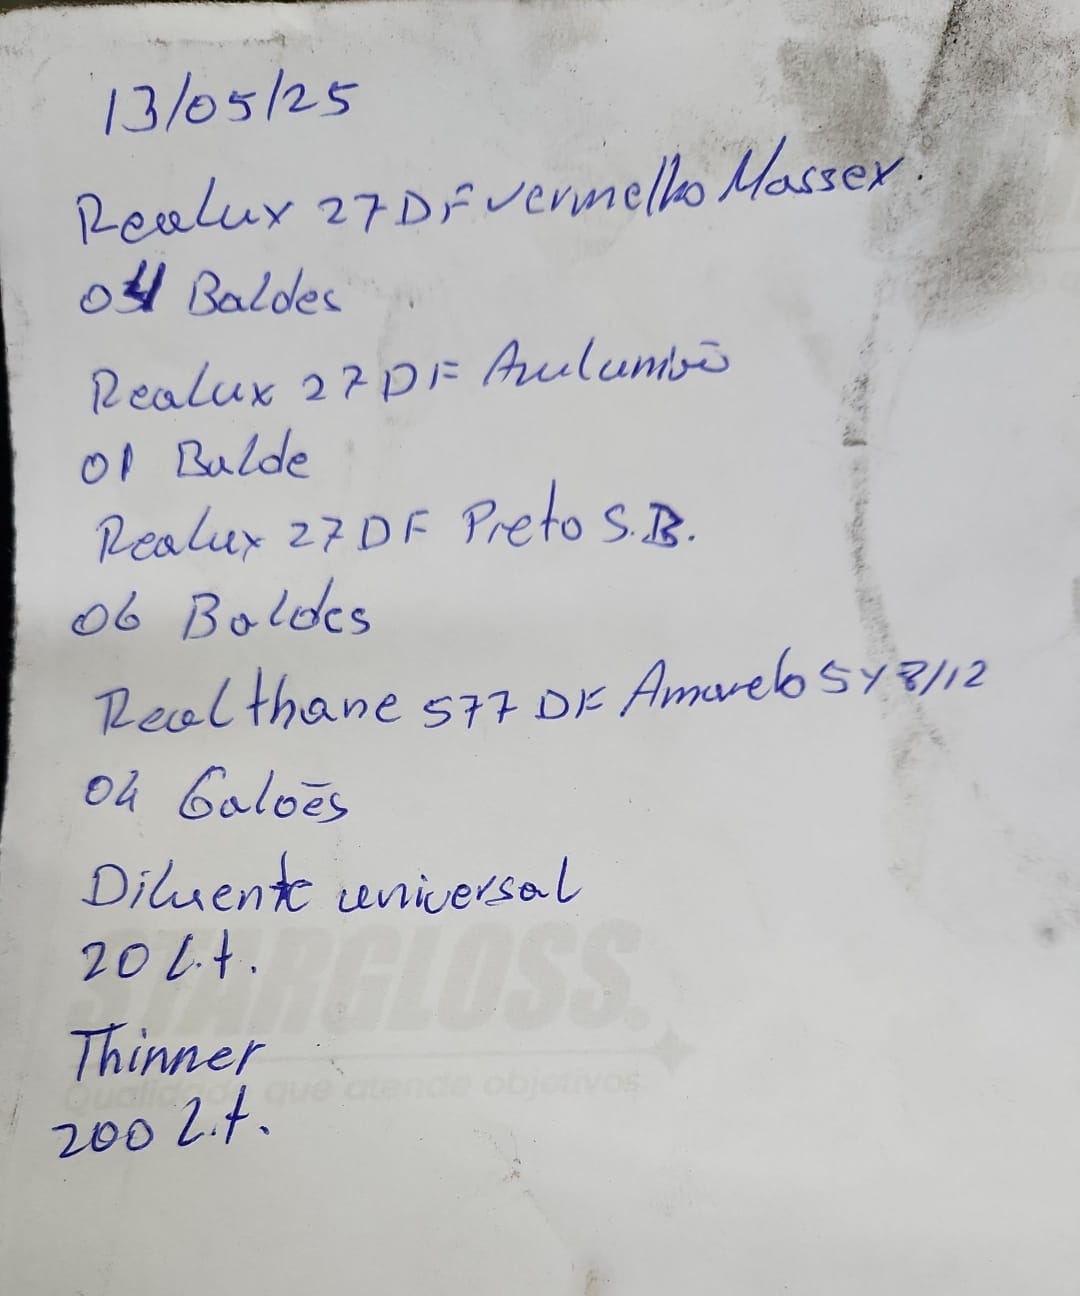 13/05/25
Realux 27 DF vermelho Massex.
04 Baldes
Realux 27 DF
01 Balde
Realux 27 DF Preto S.B.
06 Baldes
Realthane 577 DF Amarelo 5Y 8/12
04 Galoēs
Diluente universal
20 L.t.
STARGLOSS.
Thinner
Qualidade que atende objetivos
200 L.t.